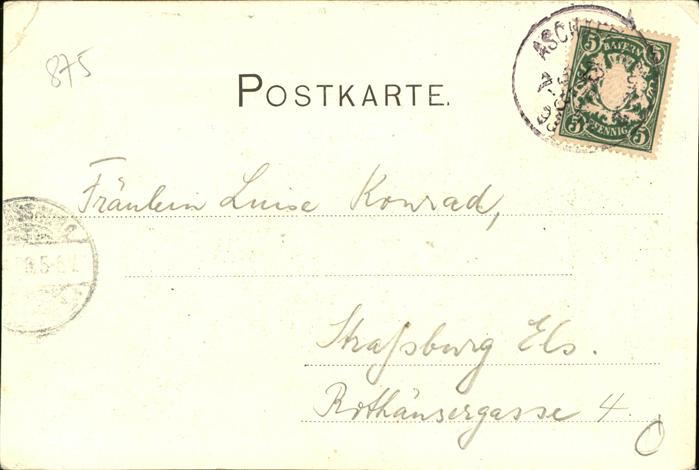 875
POSTKARTE.
5 BAYERN 5
5 PFENNIG 5
Fräulein Luise Konrad,
Straßburg Els.
Rothäusergasse 4.